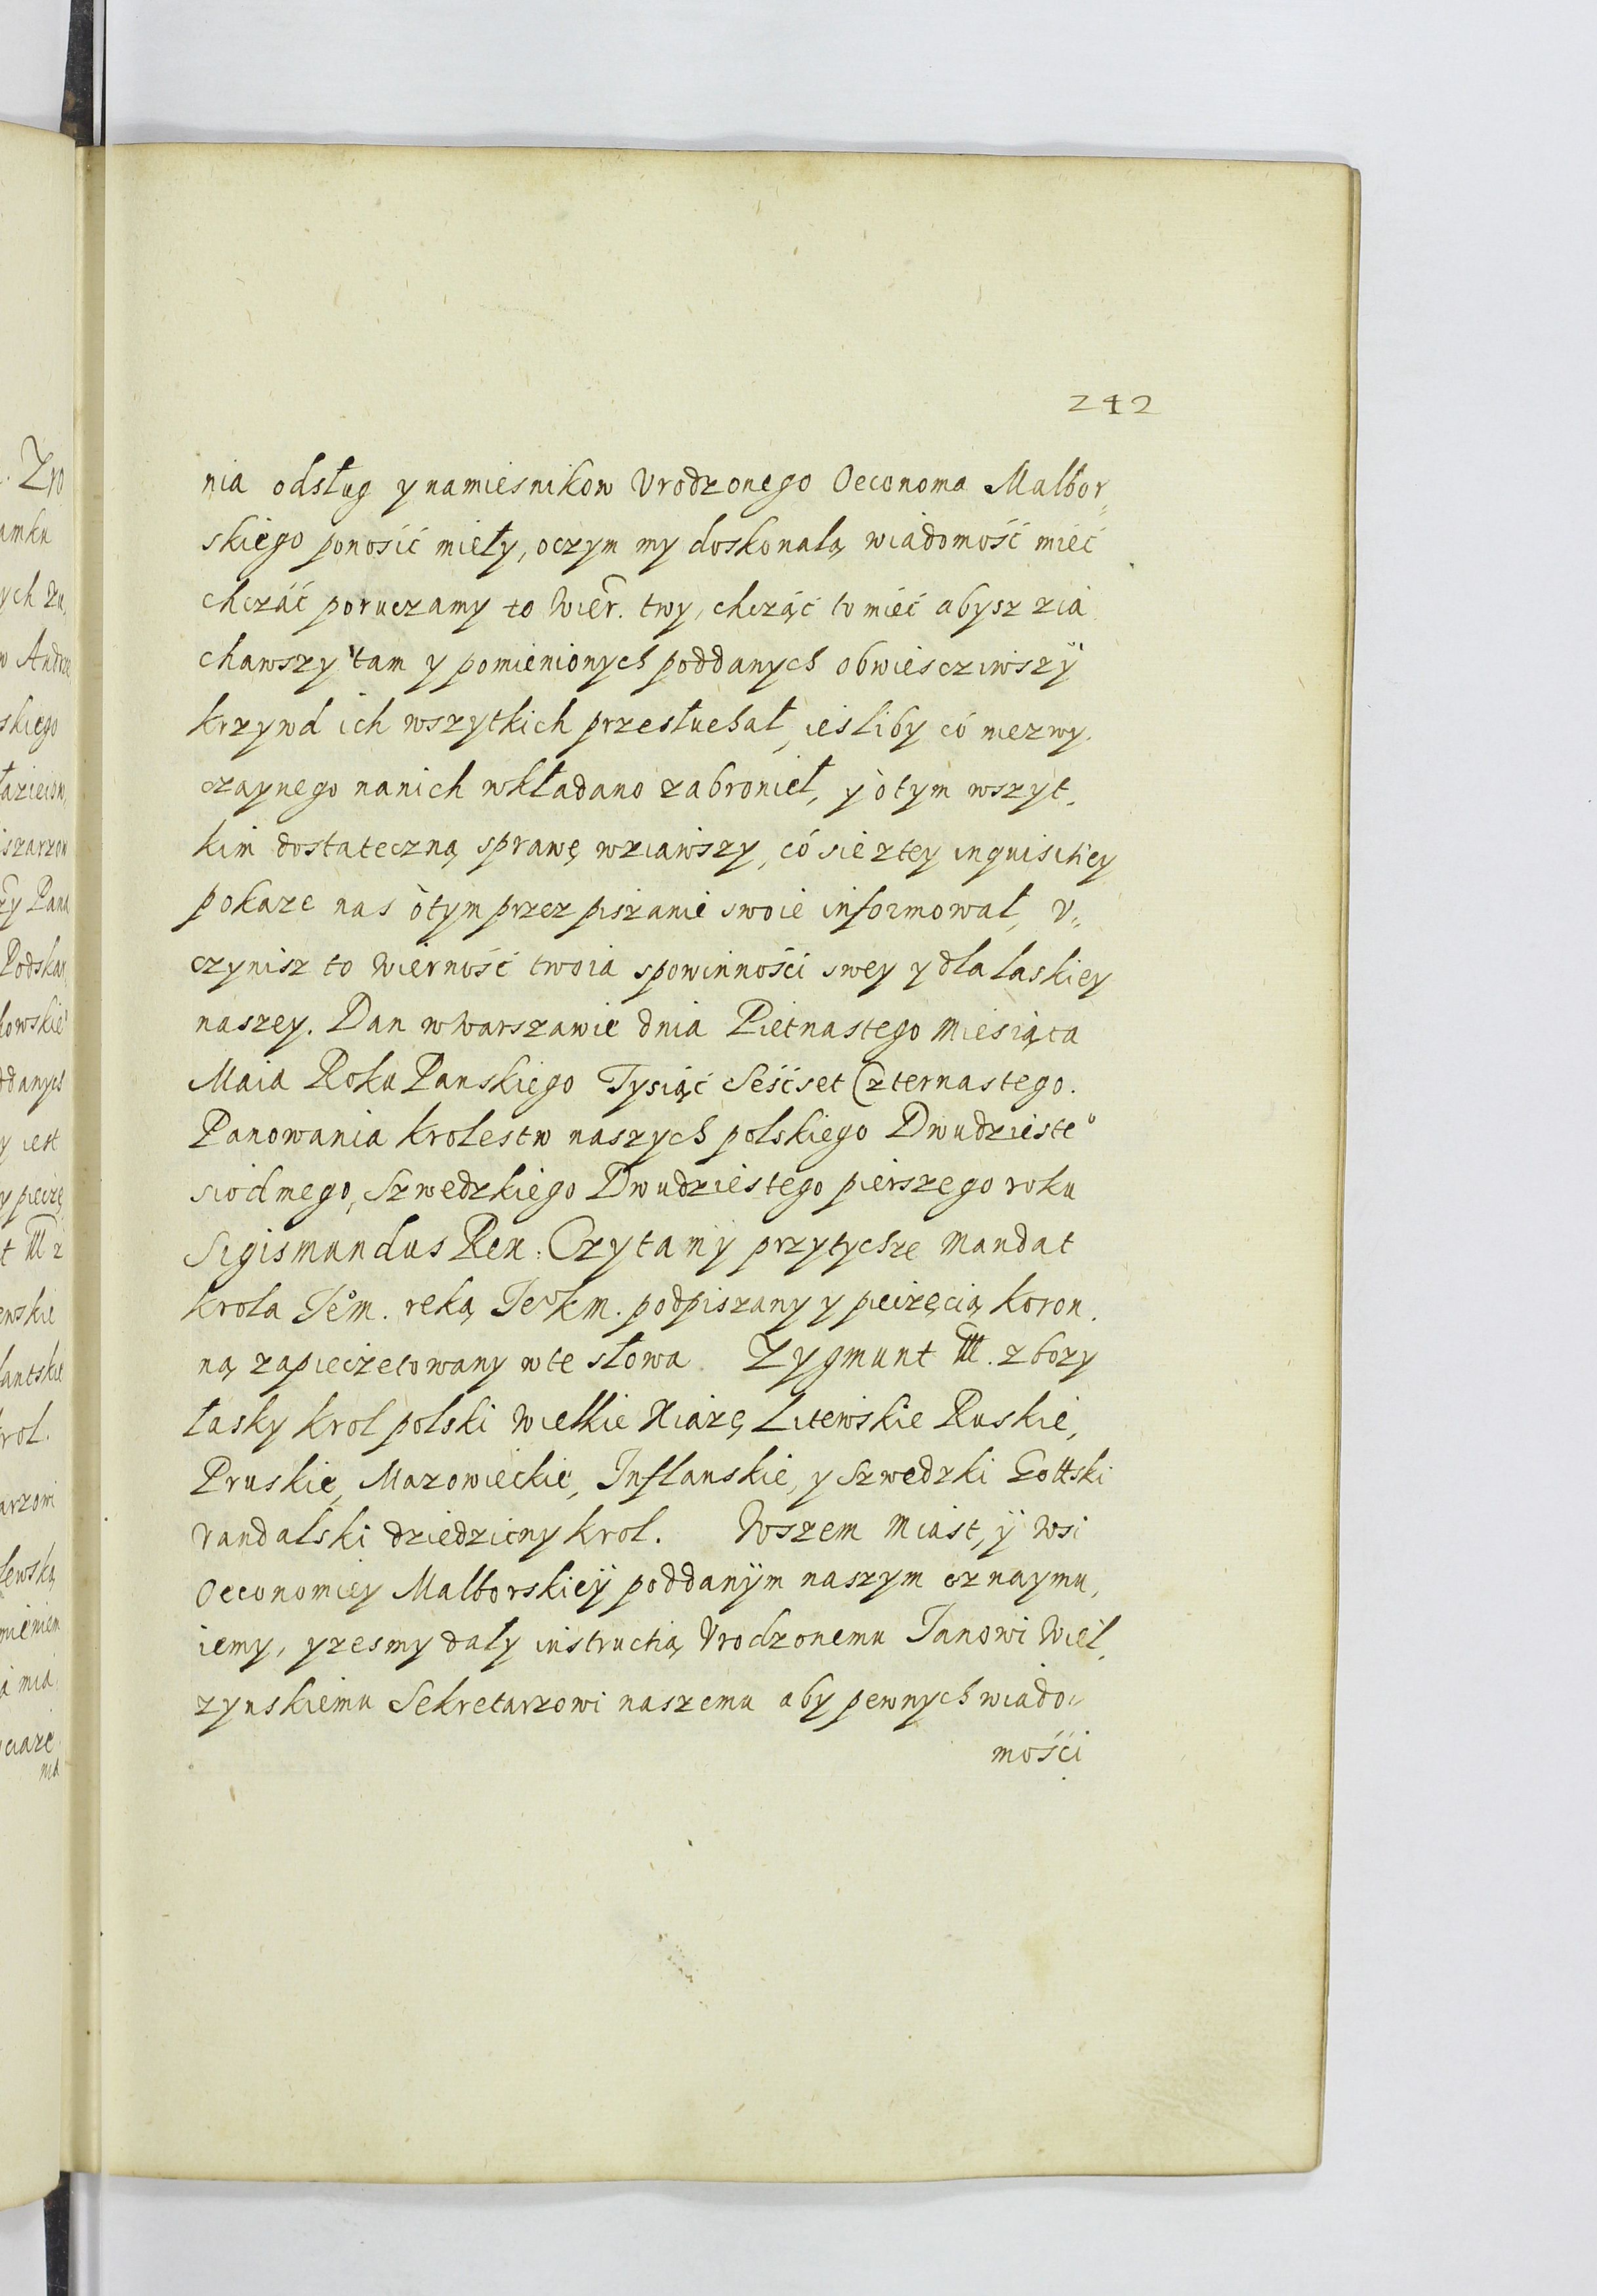 242
nia odsług y namiesnikow Vrodzonego Oeconoma Malbor„
skiego ponosić mieły, oczym my doskonałą wiadomość mieć
chcząć poruczamy to Wier. twy, chcząć to mieć abysz zia
chawszy tam y pomienionych poddanych obwiescziwszÿ
krzywd ich wszytkich przesłuchał, iesliby có niezwy„
czaynego nanich wkładano zabronieł, y òtym wszyt„
kim dostateczną sprawę wziawszy, có sie ztey inquisitiey
pokaze nas òtym przez piszanie swoie informował, V„
czynisz to Wierność twoia spowinności swey y dla laskiey
naszey. Dan wWarszawie dnia Pietnastego Miesiąca
Maia Roku Panskiego Tysiąć Seśćset Czternastego.
Panowania Krolestw naszych polskiego Dwudziesteº
siodmego, Szwedzkiego Dwudziestego pierszego roku
Sigismundus Rex: Czytany przytychze Mandat
Krola Jeºm. reką Jeºkm. podpiszany y pieczęcią Koron„
ną zapieczetowany wte słowa. Zygmunt III. z bozy
łasky Krol polski Wielkie Xiazę Litewskie Ruskie,
Pruskie, Mazowieckie, Inflanskie, y Szwedzki Gottski
Vandalski dziedzicny Krol. Wszem Miast, ÿ Wsi
Oeconomiey Malborskieÿ poddanÿm naszym oznaymu„
iemy, yzesmy dały instructią Vrodzonemu Janowi Wiel„
zynskiemu Sekretarzowi naszemu aby pewnych wiado„
mośći